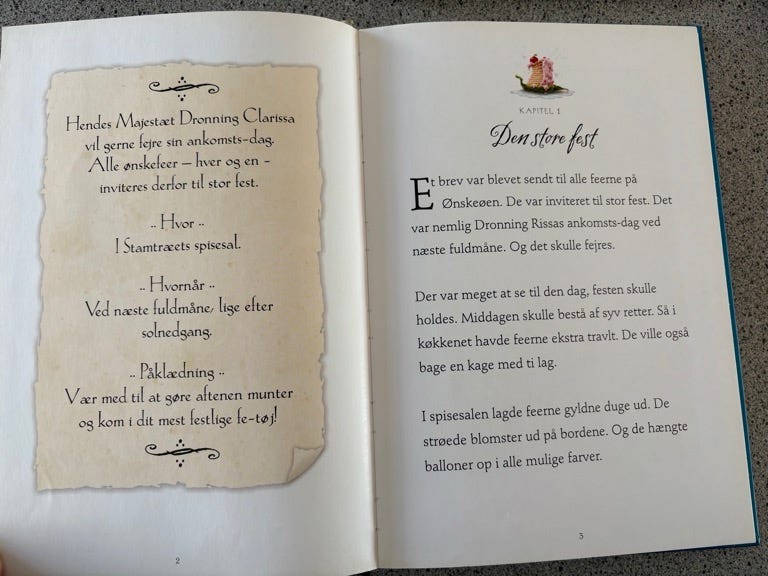 Hendes Majestæt Dronning Clarissa
vil gerne fejre sin ankomsts-dag.
Alle ønskefeer – hver og en -
inviteres derfor til stor fest.
.. Hvor ..
I Stamtræets spisesal.
.. Hvornår ..
Ved næste fuldmåne, lige efter
solnedgang.
.. Påklædning ..
Vær med til at gøre aftenen munter
og kom i dit mest festlige fe-tøj!
2
KAPITEL 1
Den store fest
Et brev var blevet sendt til alle feerne på
Ønskeøen. De var inviteret til stor fest. Det
var nemlig Dronning Rissas ankomsts-dag ved
næste fuldmåne. Og det skulle fejres.
Der var meget at se til den dag, festen skulle
holdes. Middagen skulle bestå af syv retter. Så i
køkkenet havde feerne ekstra travlt. De ville også
bage en kage med ti lag.
I spisesalen lagde feerne gyldne duge ud. De
strøede blomster ud på bordene. Og de hængte
balloner op i alle mulige farver.
3